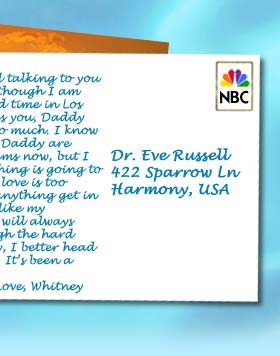 l talking to you
though I am
d time in Los
s you, Daddy
o much. I know
Daddy are
ms now, but I
hing is going to
love is too
nything get in
like my
will always
gh the hard
, I better head
It's been a
Love, Whitney
NBC
Dr. Eve Russell
422 Sparrow Ln
Harmony, USA